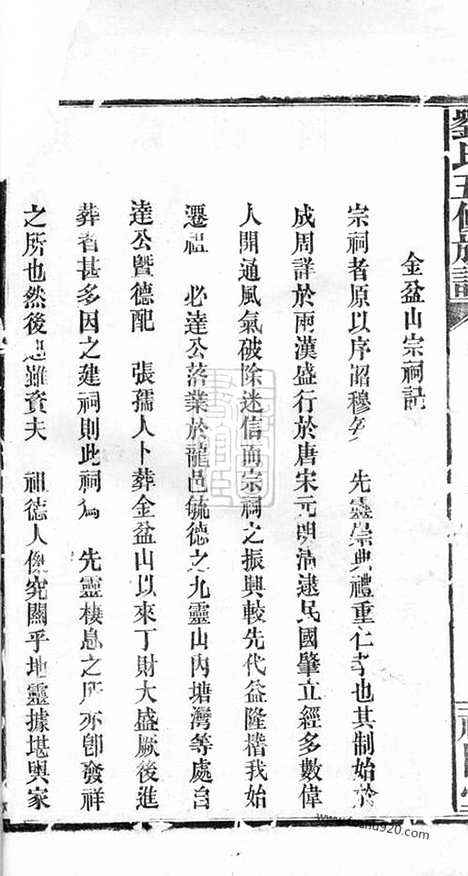 劉氏五修族譜
金盆山宗祠記
宗祠者原以序詔穆妥 先靈崇典禮重仁孝也其制始於
成周詳於兩漢盛行於唐宋元明清逮民國肇立經多數偉
人開通風氣破除迷信而宗祠之振興較先代益隆楷我始
遷祖 必達公落業於龍邑毓德之九靈山內塘灣等處自
達公曁德配 張孺人卜葬金盆山以來丁財大盛厥後進
葬者甚多因之建祠則此祠為 先靈棲息之所亦卽發祥
之所也然後思雖資夫 祖德人傑究關乎地靈據堪輿家